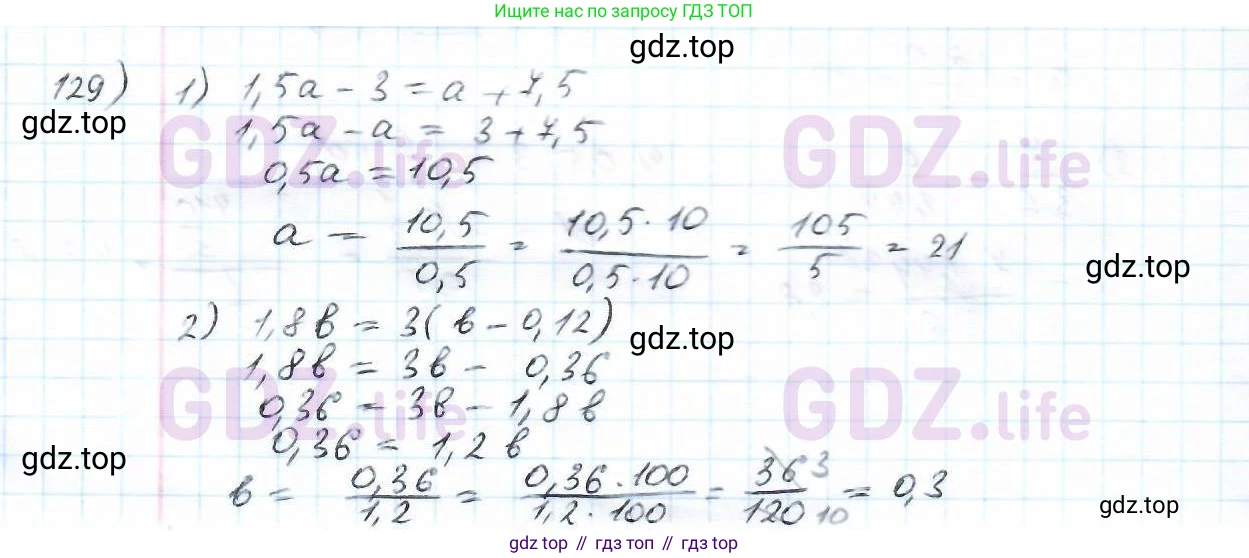 Ищите нас по запросу ГДЗ ТОП
gdz.top
129) 1) 1,5a - 3 = a + 7,5
gdz.top
1,5a - a = 3 + 7,5
GDZ.life GDZ.life
0,5a = 10,5
a = 10,5/0,5 = 10,5·10/0,5·10 = 105/5 = 21
gdz.top
2) 1,8в = 3(в - 0,12)
gdz.top
1,8в = 3в - 0,36
GDZ.life GDZ.life
0,36 = 3в - 1,8в
0,36 = 1,2в
gdz.top
в = 0,36/1,2 = 0,36·100/1,2·100 = 36 3/120 10 = 0,3
gdz.top
gdz.top // гдз.топ // gdz.top